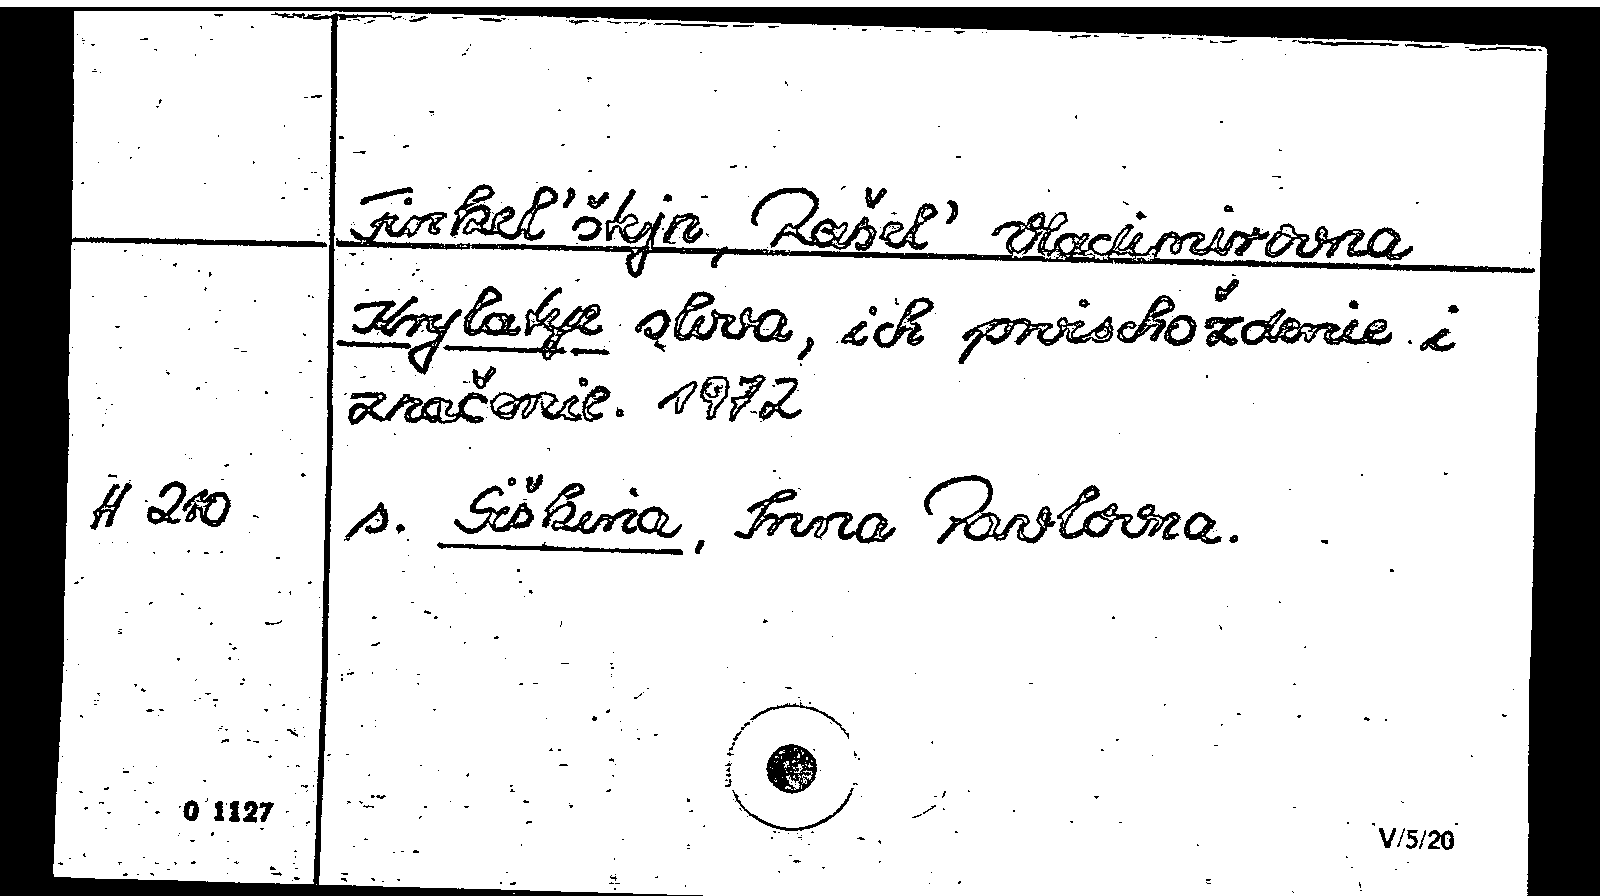 Finkel'štejn, Rašel' Vladimirovna
Krylatye slova, ich proischoždenie i
značenie. 1972
H 210 s. Šiškina, Inna Pavlovna.
0 1127
V/5/20